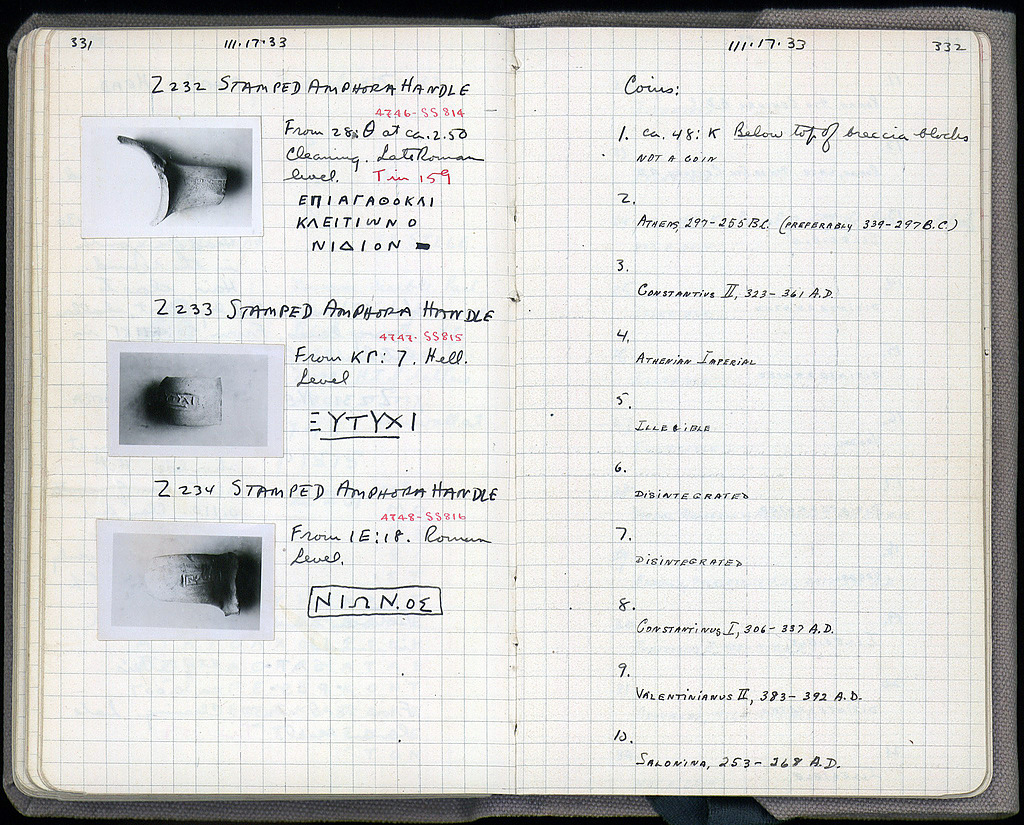 331
111·17·33
Z 232 STAMPED AMPHORA HANDLE
4746-SS814
From 28:Θ at ca. 2.50
Cleaning. Late Roman
level. Tin 159
ΕΠΙΑΓΑΘΟΚΛΙ
ΚΛΕΙΤΙWΝ Ο
ΝΙΔΙΟΝ
Z 233 STAMPED AMPHORA HANDLE
4747-SS815
From ΚΓ: 7. Hell.
Level
ΞΥΤΥΧΙ
Z 234 STAMPED AMPHORA HANDLE
4748-SS816
From 1E:18. Roman
Level.
ΝΙΩΝ.ΟΣ
111·17·33
332
Coins:
1. ca. 48: K Below top of breccia blocks
NOT A COIN
2.
ATHENS, 297-255 B.C. (PREFERABLY 339-297 B.C.)
3.
CONSTANTIUS II, 323-361 A.D.
4.
ATHENIAN IMPERIAL
5.
ILLEGIBLE
6.
DISINTEGRATED
7.
DISINTEGRATED
8.
CONSTANTINUS I, 306-337 A.D.
9.
VALENTINIANUS II, 383-392 A.D.
10.
SALONINA, 253-268 A.D.